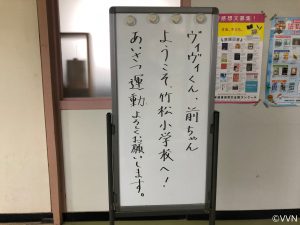 ヴィヴィくん、前ちゃん
ようこそ竹松小学校へ!
あいさつ運動よろしくお願いします。
©VVN